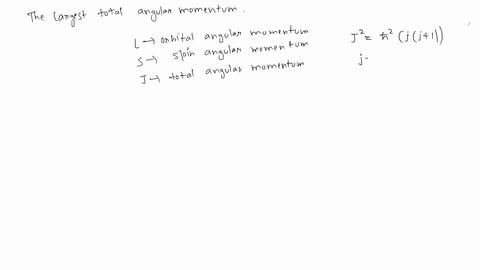 The largest total angular momentum.
L → orbital angular momentum
S → spin angular momentum
J → total angular momentum
J² = ħ² (j(j+1))
j-